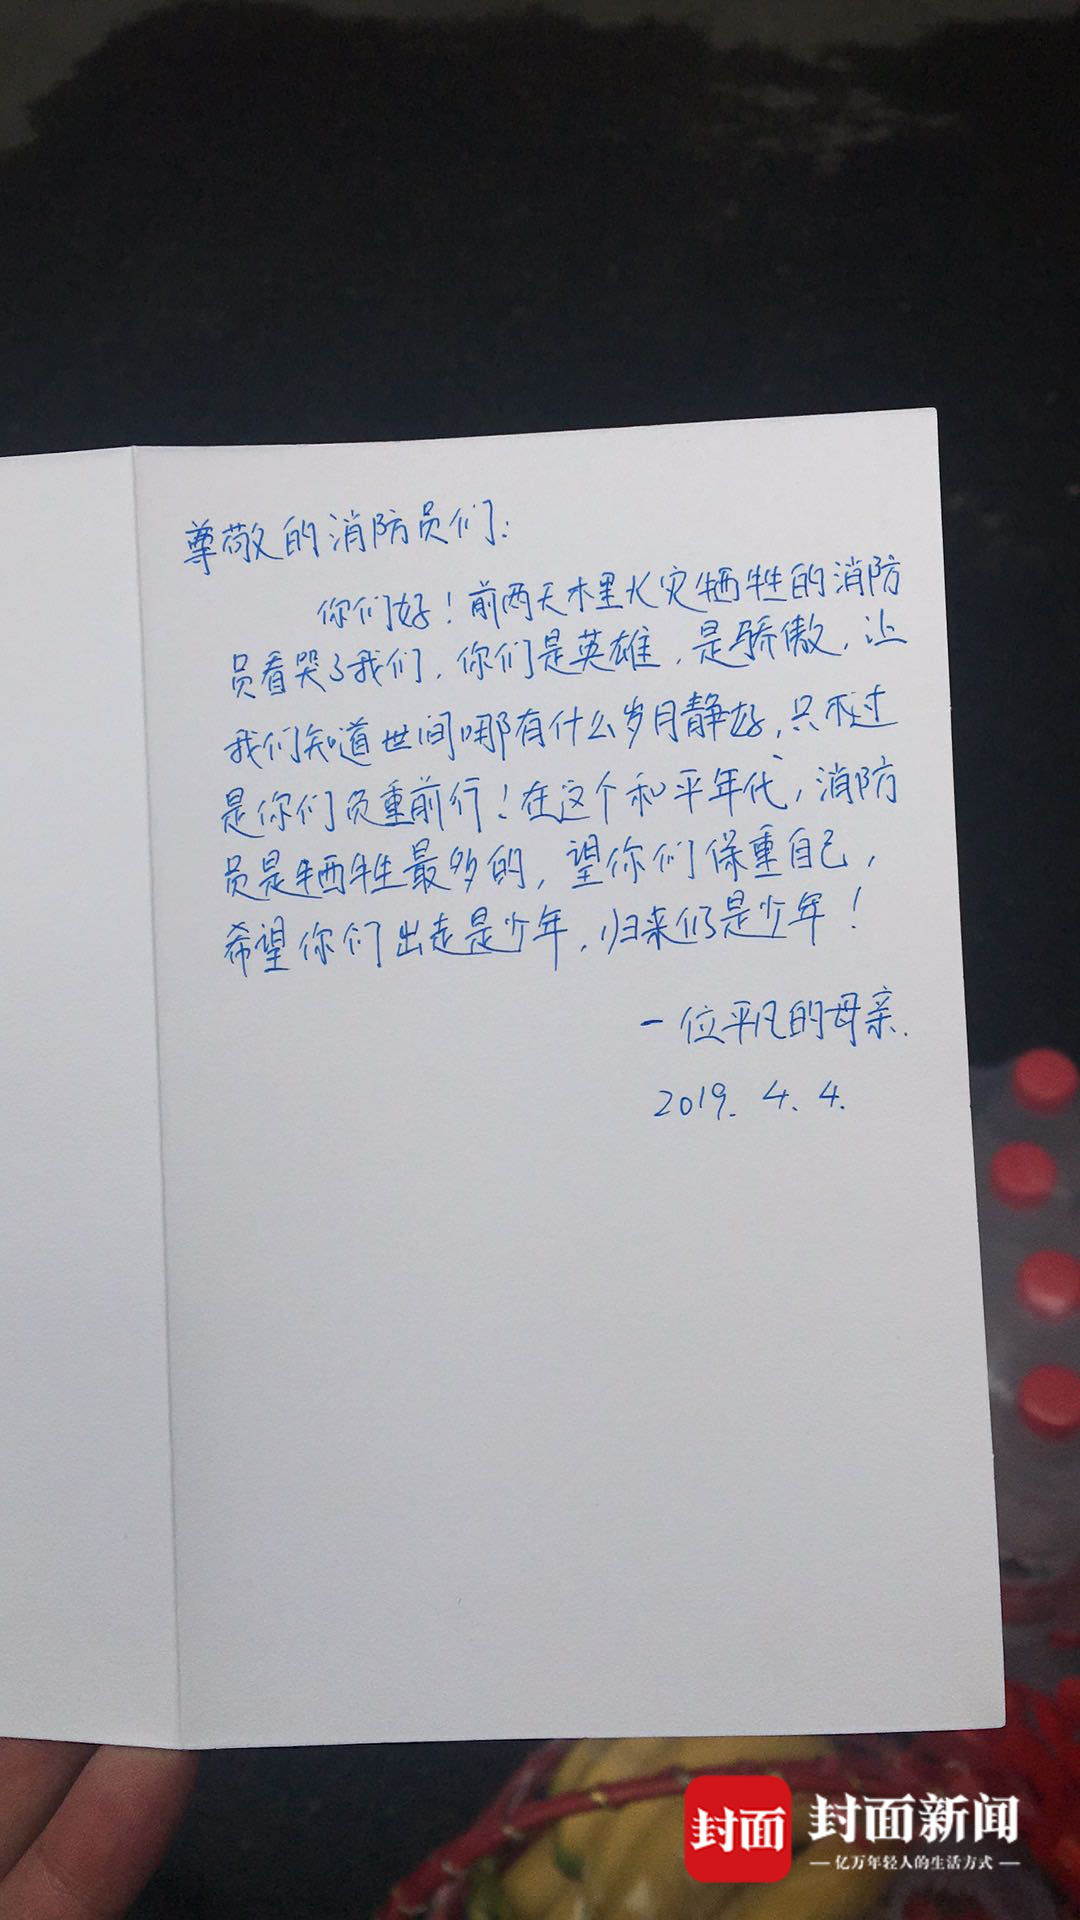 尊敬的消防员们:
你们好!前两天木里火灾牺牲的消防
员看哭了我们,你们是英雄,是骄傲,让
我们知道世间哪有什么岁月静好,只不过
是你们负重前行!在这个和平年代,消防
员是牺牲最多的,望你们保重自己,
希望你们出走是少年,归来仍是少年!
一位平凡的母亲.
2019.4.4.
封面
封面新闻
亿万年轻人的生活方式